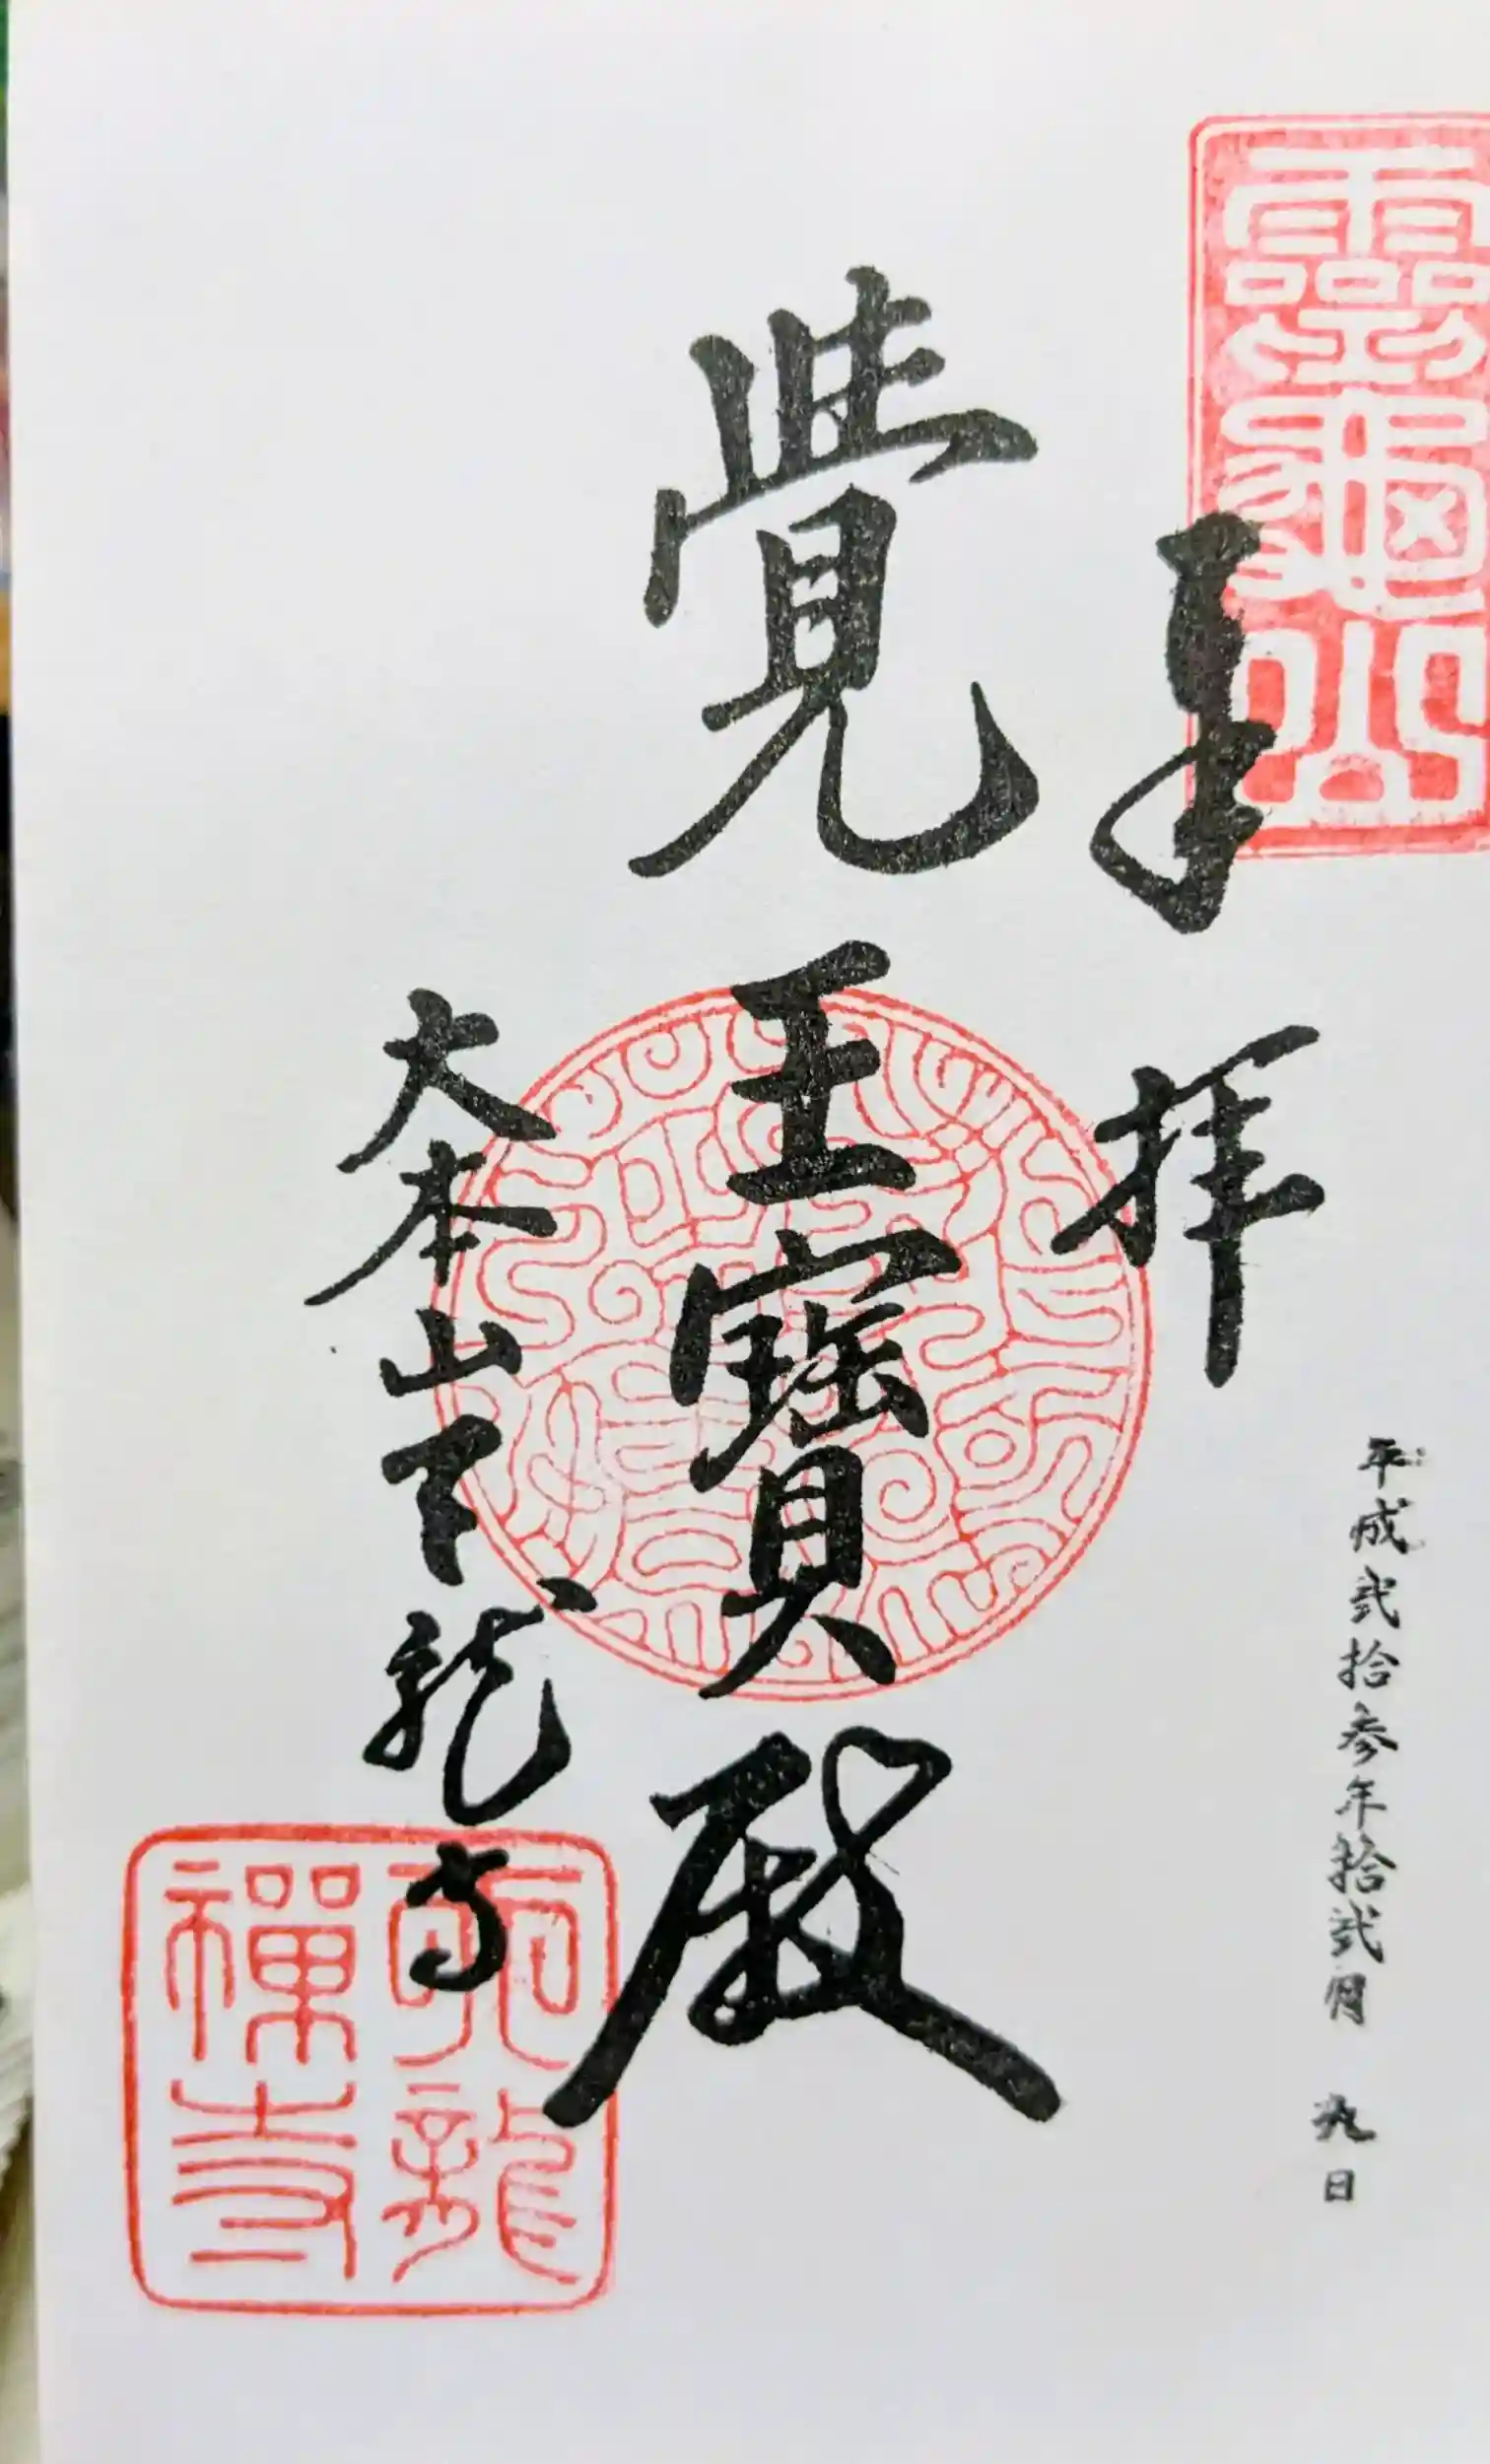 靈龜山
奉拝
平成弐拾参年拾弐月 九日
覺王寶殿
大本山天龍寺
天龍
禪寺